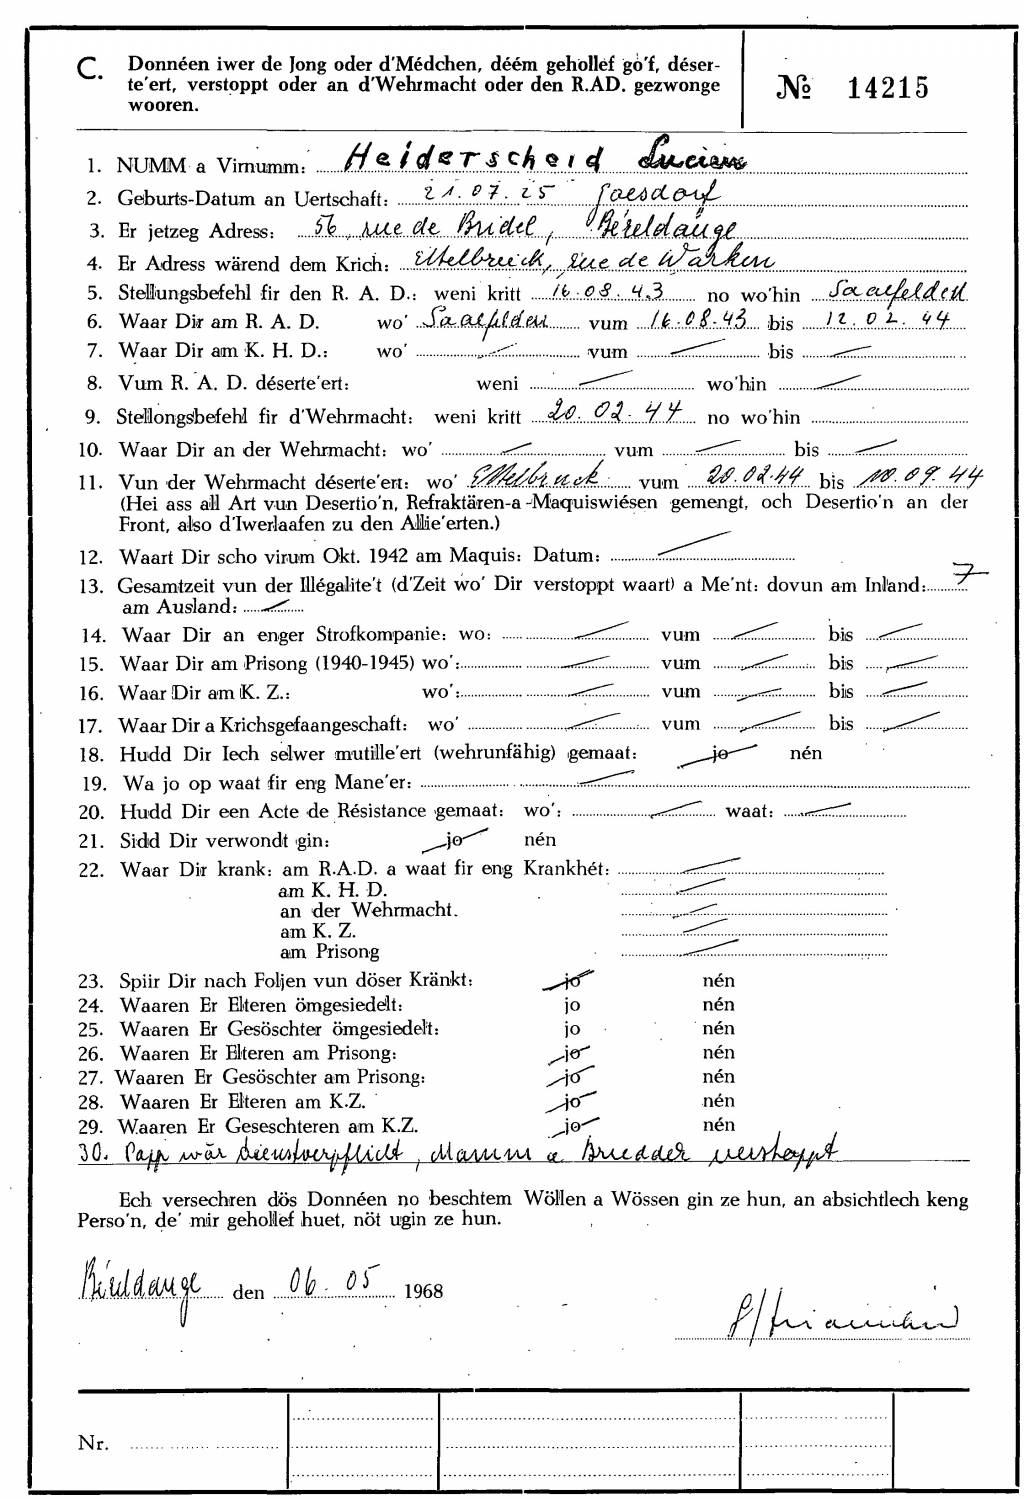 C. Donnéen iwer de Jong oder d'Médchen, déém gehollef go'f, déser-
te'ert, verstoppt oder an d'Wehrmacht oder den R.AD. gezwonge
wooren.
№ 14215
1. NUMM a Virnumm: Heiderscheid Lucien
2. Geburts-Datum an Uertschaft: 21.07.25 Goesdorf
3. Er jetzeg Adress: 56, rue de Bridel, Béreldange
4. Er Adress wärend dem Krich: Ettelbruck, rue de Warken
5. Stellungsbefehl fir den R. A. D.: weni kritt 16.08.43 no wo'hin Saalfelden
6. Waar Dir am R. A. D. wo' Saalfelden vum 16.08.43 bis 12.02.44
7. Waar Dir am K. H. D.: wo' vum bis
8. Vum R. A. D. déserte'ert: weni wo'hin
9. Stellongsbefehl fir d'Wehrmacht: weni kritt 20.02.44 no wo'hin
10. Waar Dir an der Wehrmacht: wo' vum bis
11. Vun der Wehrmacht déserte'ert: wo' Ettelbruck vum 20.02.44 bis 10.09.44
(Hei ass all Art vun Desertio'n, Refraktären-a-Maquiswiésen gemengt, och Desertio'n an der
Front, also d'Iwerlaafen zu den Allie'erten.)
12. Waart Dir scho virum Okt. 1942 am Maquis: Datum:
13. Gesamtzeit vun der Illégalite't (d'Zeit wo' Dir verstoppt waart) a Me'nt: dovun am Inland: 7
am Ausland:
14. Waar Dir an enger Strofkompanie: wo: vum bis
15. Waar Dir am Prisong (1940-1945) wo': vum bis
16. Waar Dir am K. Z.: wo': vum bis
17. Waar Dir a Krichsgefaangeschaft: wo' vum bis
18. Hudd Dir Iech selwer mutille'ert (wehrunfähig) gemaat: jo nén
19. Wa jo op waat fir eng Mane'er:
20. Hudd Dir een Acte de Résistance gemaat: wo': waat:
21. Sidd Dir verwondt gin: jo nén
22. Waar Dir krank: am R.A.D. a waat fir eng Krankhét:
am K. H. D.
an der Wehrmacht.
am K. Z.
am Prisong
23. Spiir Dir nach Foljen vun döser Kränkt: jo nén
24. Waaren Er Elteren ömgesiedelt: jo nén
25. Waaren Er Gesöschter ömgesiedelt: jo nén
26. Waaren Er Elteren am Prisong: jo nén
27. Waaren Er Gesöschter am Prisong: jo nén
28. Waaren Er Elteren am K.Z. jo nén
29. Waaren Er Geseschteren am K.Z. jo nén
30. Papp wár dienstverpflicht, Mamm a Brudder verstoppt
Ech versechren dös Donnéen no beschtem Wöllen a Wössen gin ze hun, an absichtlech keng
Perso'n, de' mir gehollef huet, nöt ugin ze hun.
Béreldange den 06.05 1968
Nr.